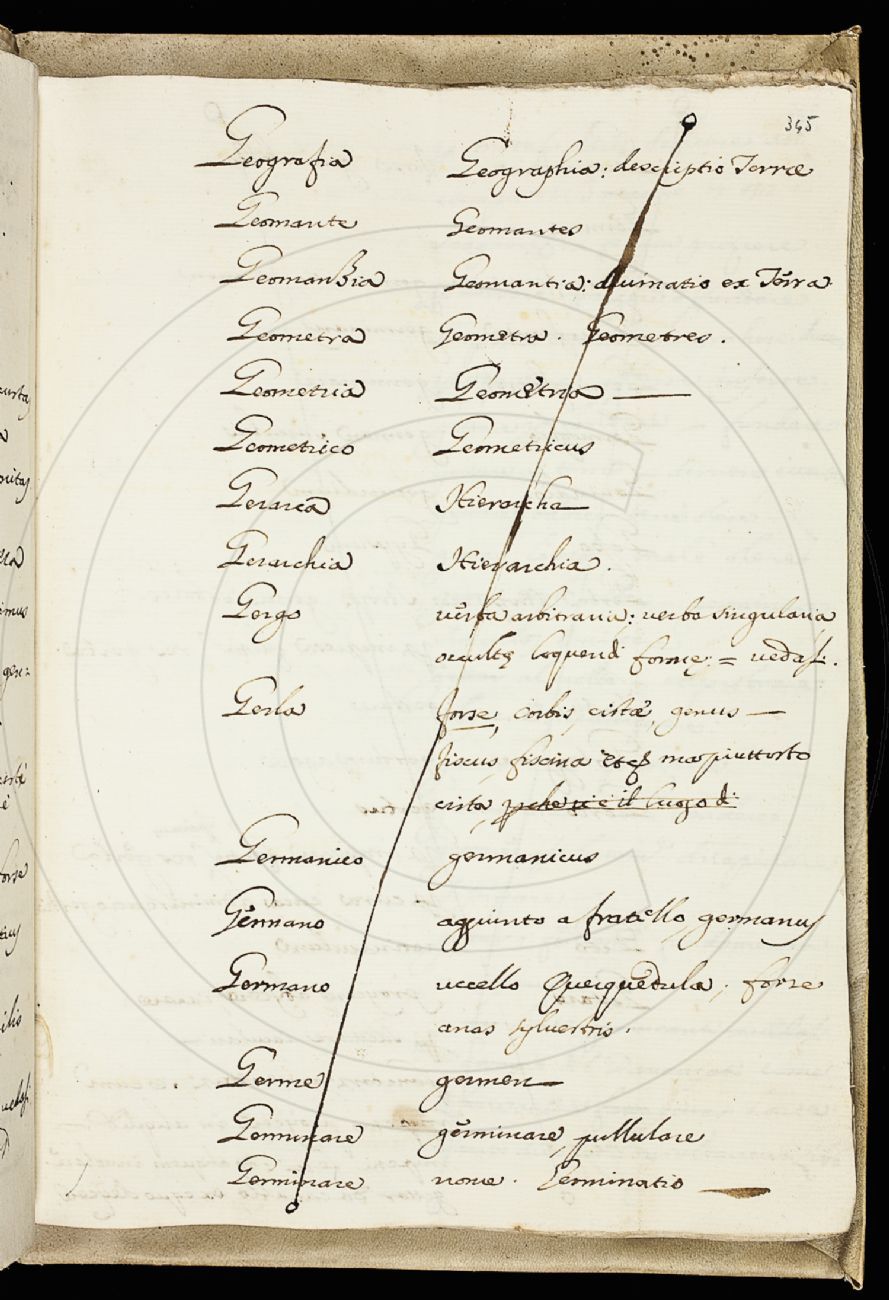 345
Geografia Geographia: descriptio Terræ
Geomante Geomantes
Geomanzia Geomantia: divinatio ex Terra
Geometra Geometra. Geometres.
Geometria Geometria
Geometrico Geometricus
Gerarca Hierarcha
Gerarchia Hierarchia.
Gergo verba arbitraria; verba singularia
occultę loquendi formę; = vedasi.
Gerla forse, corbis, cistæ, genus
fiscus, fiscina ma piuttosto
cista, pche vi è il luogo di
Germanico germanicus
Germano aggiunto a fratello, germanus
Germano uccello Querquedula; forse
anas sylvestris.
Germe germen
Germinare germinare, pullulare
Germinare nome. Germinatio